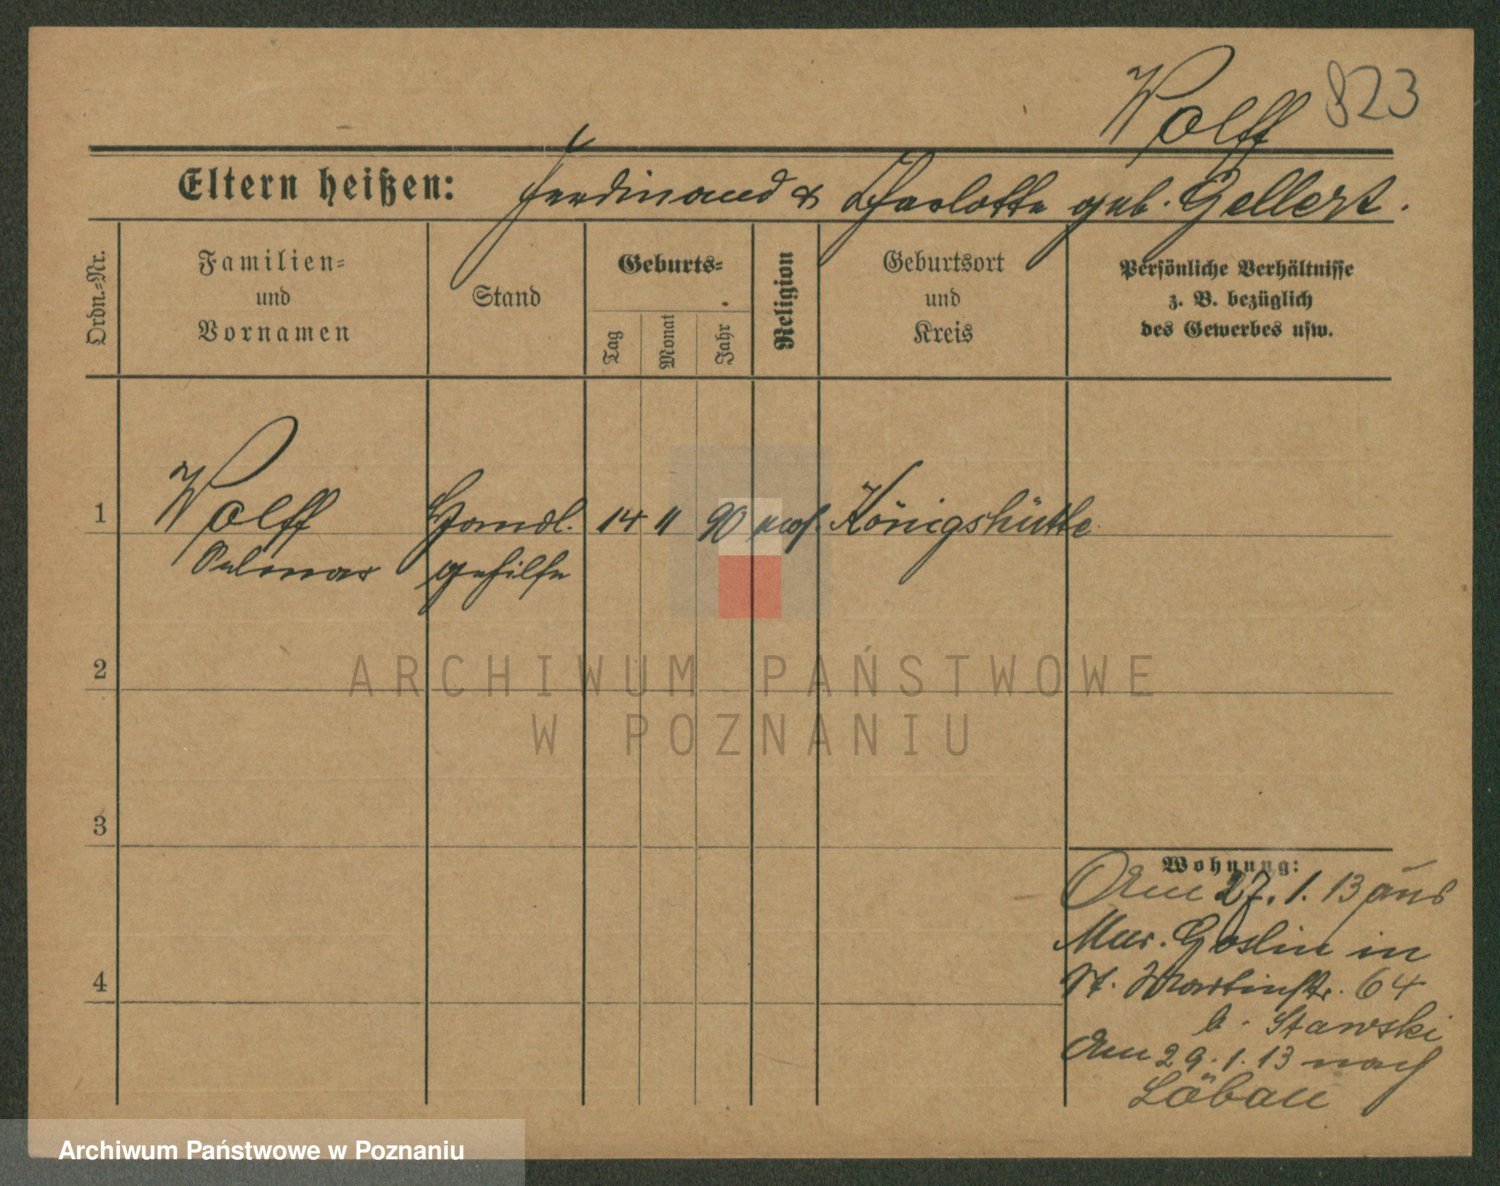 Wolff 823
Eltern heißen: Ferdinand & Charlotte geb. Gellert.
Ordn.-Nr.
Familien-
und
Vornamen
Stand
Geburts-
Tag
Monat
Jahr
Religion
Geburtsort
und
Kreis
Persönliche Verhältnisse
z. B. bezüglich
des Gewerbes usw.
1 Wolff Handl. 14 11 90 mos. Königshütte
gehilfe
2
3
4
Wohnung:
Am 27. 1. 13 aus
Mur. Goslin in
St. Martinstr. 64
b. Stawski
Am 29. 1. 13 nach
Löbau
ARCHIWUM PAŃSTWOWE
W POZNANIU
Archiwum Państwowe w Poznaniu